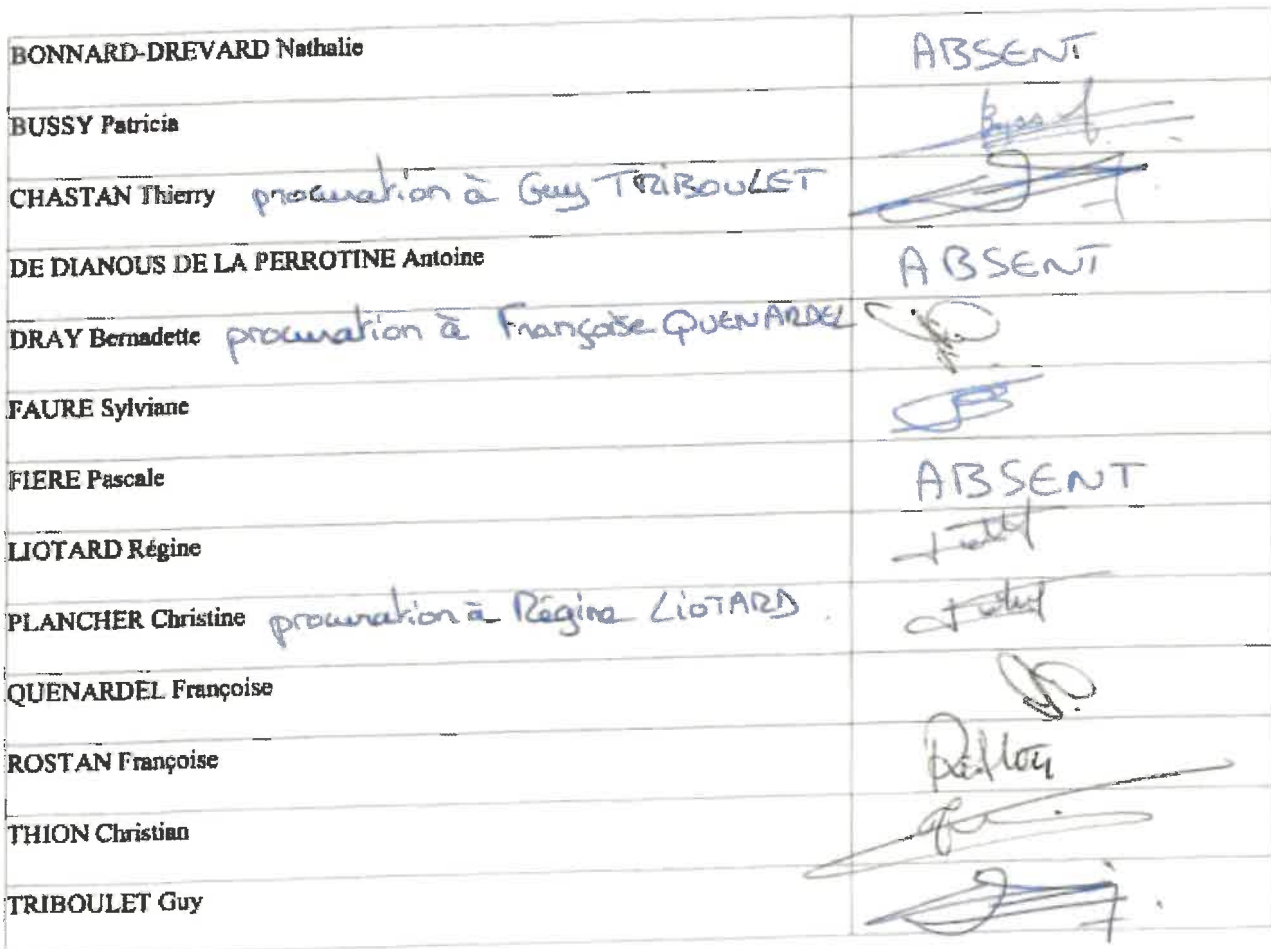 BONNARD-DREVARD Nathalie ABSENT
BUSSY Patricia
CHASTAN Thierry procuration à Guy TRIBOULET
DE DIANOUS DE LA PERROTINE Antoine ABSENT
DRAY Bernadette procuration à Françoise QUENARDEL
FAURE Sylviane
FIERE Pascale ABSENT
LIOTARD Régine
PLANCHER Christine procuration à Régine LIOTARD.
QUENARDEL Françoise
ROSTAN Françoise
THION Christian
TRIBOULET Guy